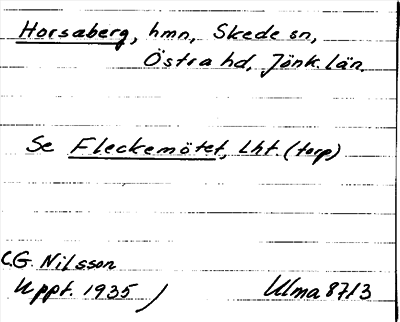 Horsaberg, hmn, Skede sn,
Östra hd, Jönk. län.
Se Fleckemötet, Lht. (torp)
C.G. Nilsson
Uppt. 1935 / Ulma 8713